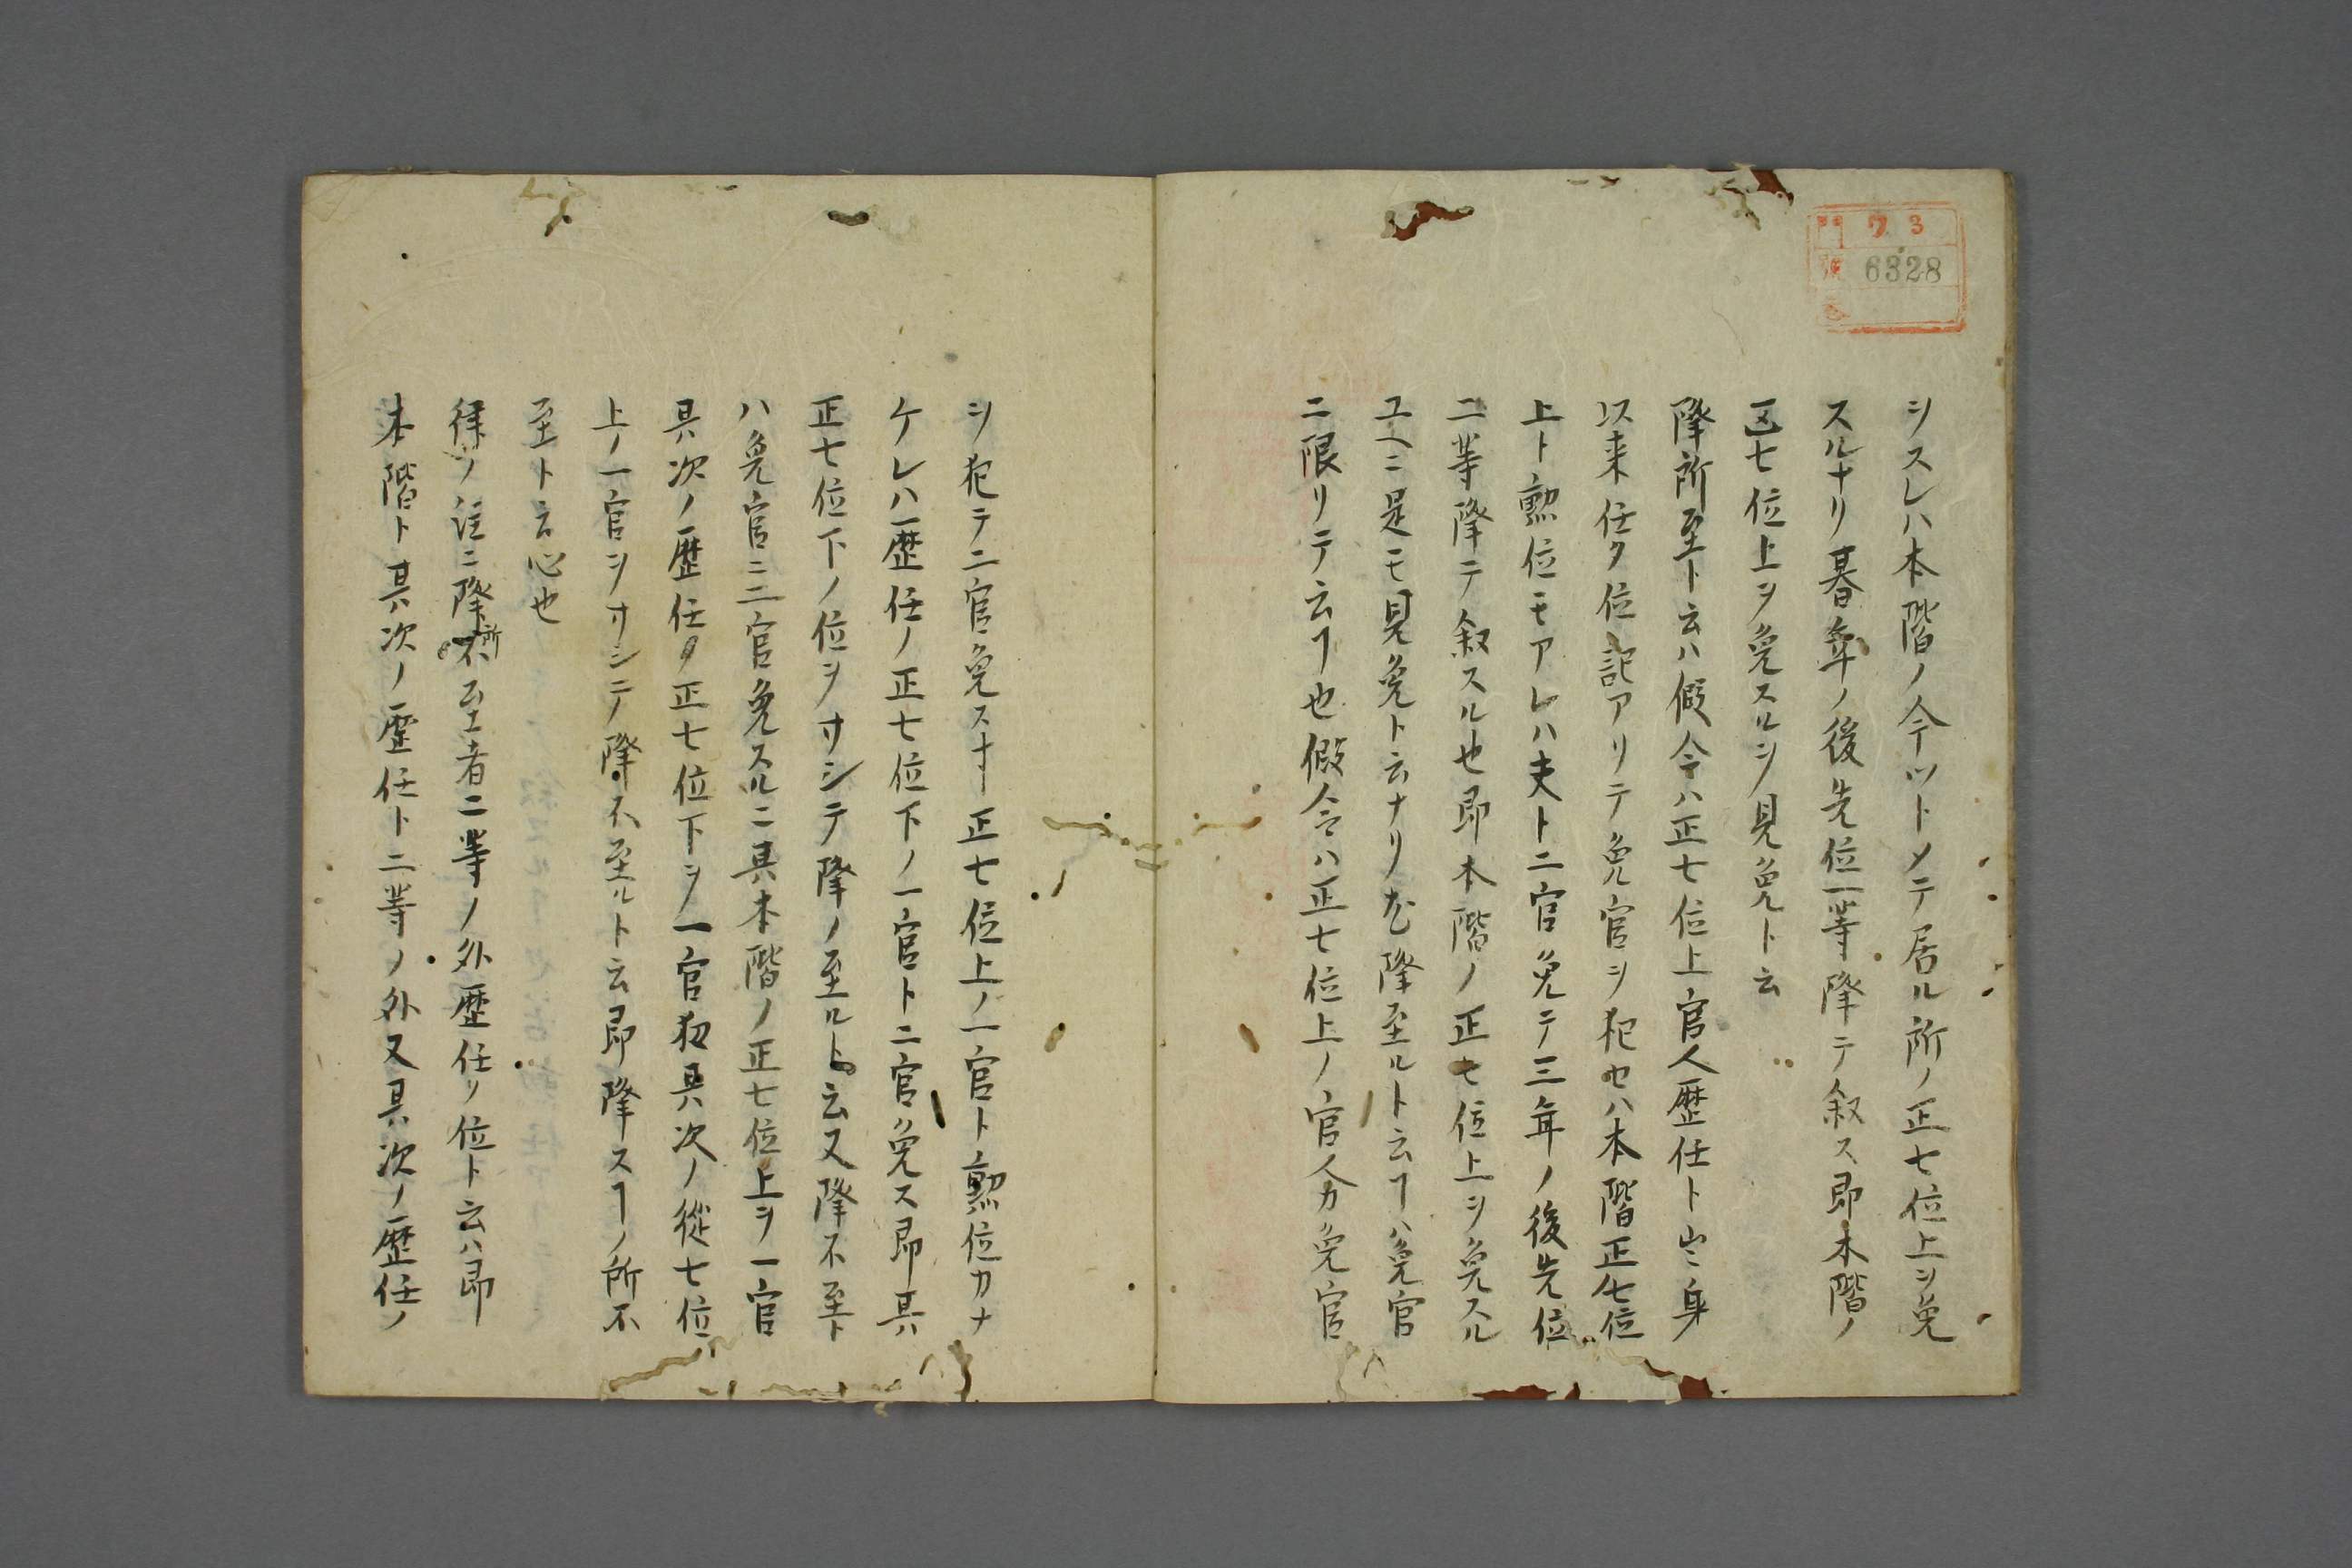 門 ワ 3
號 6328
シスレハ本階ノ今ツトメテ居ル所ノ正七位上ヲ免
スルナリ暮年ノ後先位一等降テ叙ス即本階ノ
正七位上ヲ免スルヲ見免ト云
降所至ト云ハ假令ハ正七位上官人歴任ト 身
以来任タ位記アリテ免官ヲ犯セハ本階正七位
上ト勲位モアレハ夫ト二官免テ三年ノ後先位
二等降テ叙スル也即本階ノ正七位上ヲ免スル
ユヘニ是モ見免ト云ナリ 降至ルト云ヿハ免官
ニ限リテ云ヿ也假令ハ正七位上ノ官人カ免官
ヲ犯テ二官免スオ正七位上ノ一官ト勲位カナ
ケレハ歴任ノ正七位下ノ一官ト二官免ス即其
正七位下ノ位ヲオシテ降ノ至ルト云又降不至ト
ハ免官ニ二官免スルニ其本階ノ正七位上ヲ一官
其次ノ歴任タ正七位下ヲ一官犯其次ノ從七位
上ノ一官ヲオシテ降不至ルト云即降スヿノ所不
至ト云心也
律ノ注ニ降所不至者二等ノ外歴任リ位ト云ハ即
本階ト其次ノ歴任ト二等ノ外又其次ノ歴任ノ